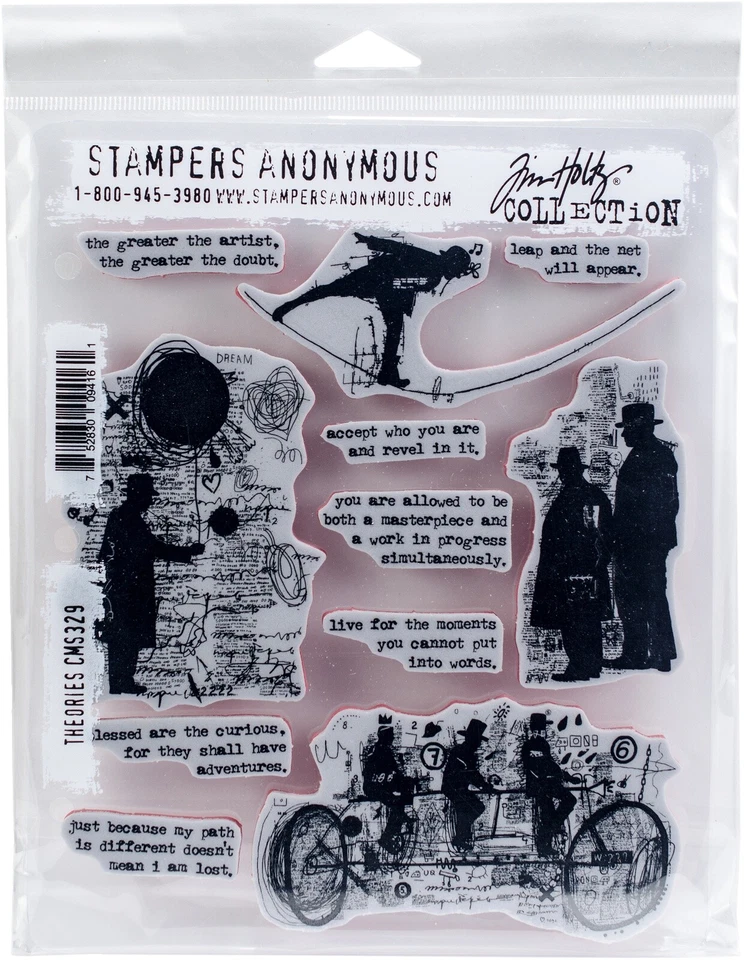 STAMPERS ANONYMOUS
1-800-945-3980 WWW.STAMPERSANONYMOUS.COM
Tim Holtz®
COLLECTION
the greater the artist,
the greater the doubt.
leap and the net
will appear.
DREAM
7 52830 09416 1
accept who you are
and revel in it.
you are allowed to be
both a masterpiece and
a work in progress
simultaneously.
live for the moments
you cannot put
into words.
THEORIES CMS329
2222
lessed are the curious,
for they shall have
adventures.
just because my path
is different doesn't
mean i am lost.
8
2
7
6
5